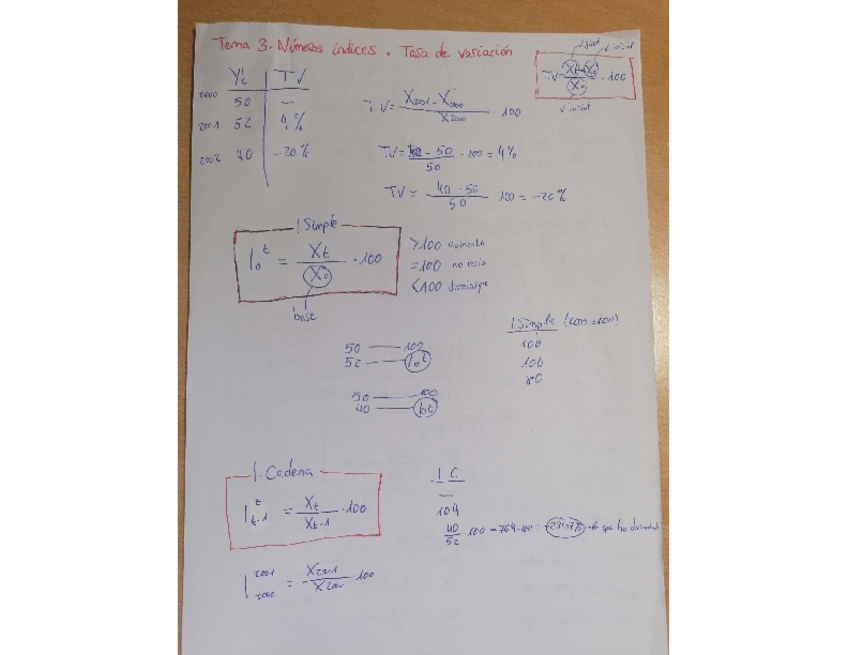 Tema 3. Números índices. Tasa de variación
TV = (Xt - X0) / X0 · 100
v. inicial
Yt | TV
2000 50 —
2001 52 4%
2002 40 -20%
TV = (X2001 - X2000) / X2000 · 100
TV = (52 - 50) / 50 · 100 = 4%
TV = (40 - 50) / 50 · 100 = -20%
I Simple
I0^t = Xt / X0 · 100
base
>100 aumenta
=100 no varía
<100 disminuye
50 — 100
52 — I0^t
50 — 100
40 —
I Simple (2000 = 100)
100
80
I. Cadena
I t-1^t = Xt / Xt-1 · 100
I 2000^2001 = X2001 / X2000 · 100
I C
—
104
40 / 52 · 100 = 76'9 - 100 = lo que ha